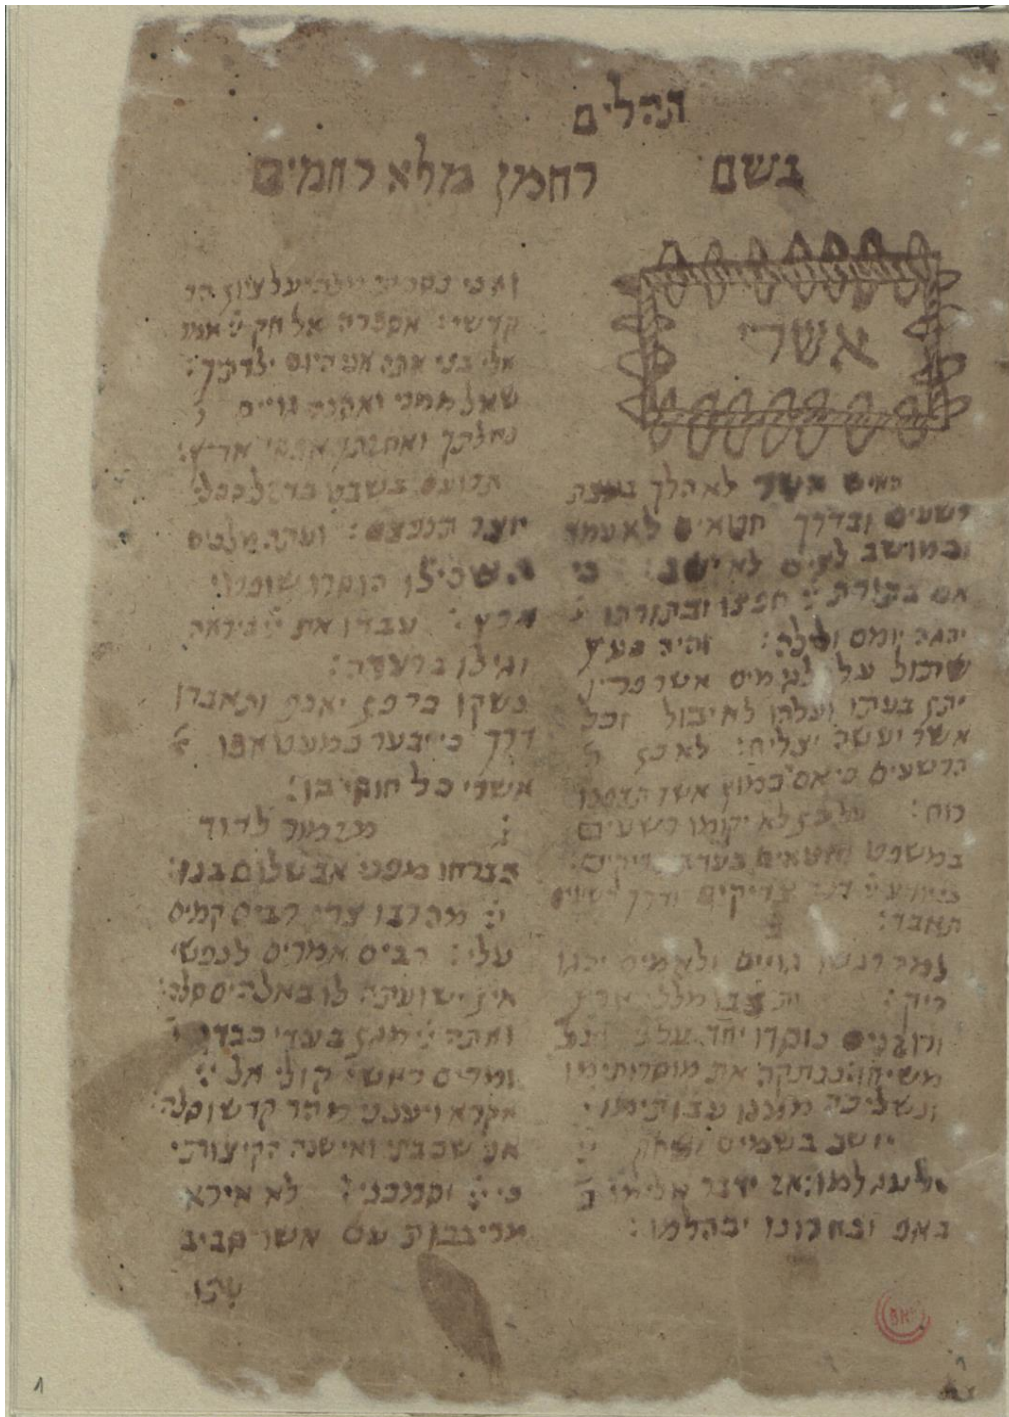 תהלים
בשם רחמן מלא רחמים
אשרי
האיש אשר לא הלך בעצת
רשעים ובדרך חטאים לא עמד
ובמושב לצים לא ישב: כי
אם בתורת חפצו ובתורתו
יהגה יומם ולילה: והיה כעץ
שתול על פלגי מים אשר פריו
יתן בעתו ועלהו לא יבול וכל
אשר יעשה יצליח: לא כן
הרשעים כי אם כמוץ אשר תדפנו
רוח: על כן לא יקומו רשעים
במשפט וחטאים בעדת צדיקים:
כי יודע דרך צדיקים ודרך רשעים
תאבד:
למה רגשו גויים ולאמים יהגו
ריק: יתיצבו מלכי ארץ
ורוזנים נוסדו יחד על ועל
משיחו: ננתקה את מוסרותימו
ונשליכה ממנו עבותימו:
יושב בשמים ישחק
ילעג למו: אז ידבר אלימו
באפו ובחרונו יבהלמו:
ואני נסכתי מלכי על ציון הר
קדשי: אספרה אל חק אמר
אלי בני אתה אני היום ילדתיך:
שאל ממני ואתנה גויים
נחלתך ואחזתך אפסי ארץ:
תרועם בשבט ברזל ככלי
יוצר תנפצם: ועתה מלכים
השכילו הוסרו שופטי
ארץ: עבדו את ביראה
וגילו ברעדה:
נשקו בר פן יאנף ותאבדו
דרך כי יבער כמעט אפו
אשרי כל חוסי בו:
מזמור לדוד
בברחו מפני אבשלום בנו:
מה רבו צרי רבים קמים
עלי: רבים אמרים לנפשי
אין ישועתה לו באלהים סלה:
ואתה מגן בעדי כבודי
ומרים ראשי: קולי אל
אקרא ויענני מהר קדשו סלה:
אני שכבתי ואישנה הקיצותי
כי יסמכני: לא אירא
מריבבות עם אשר סביב
שתו